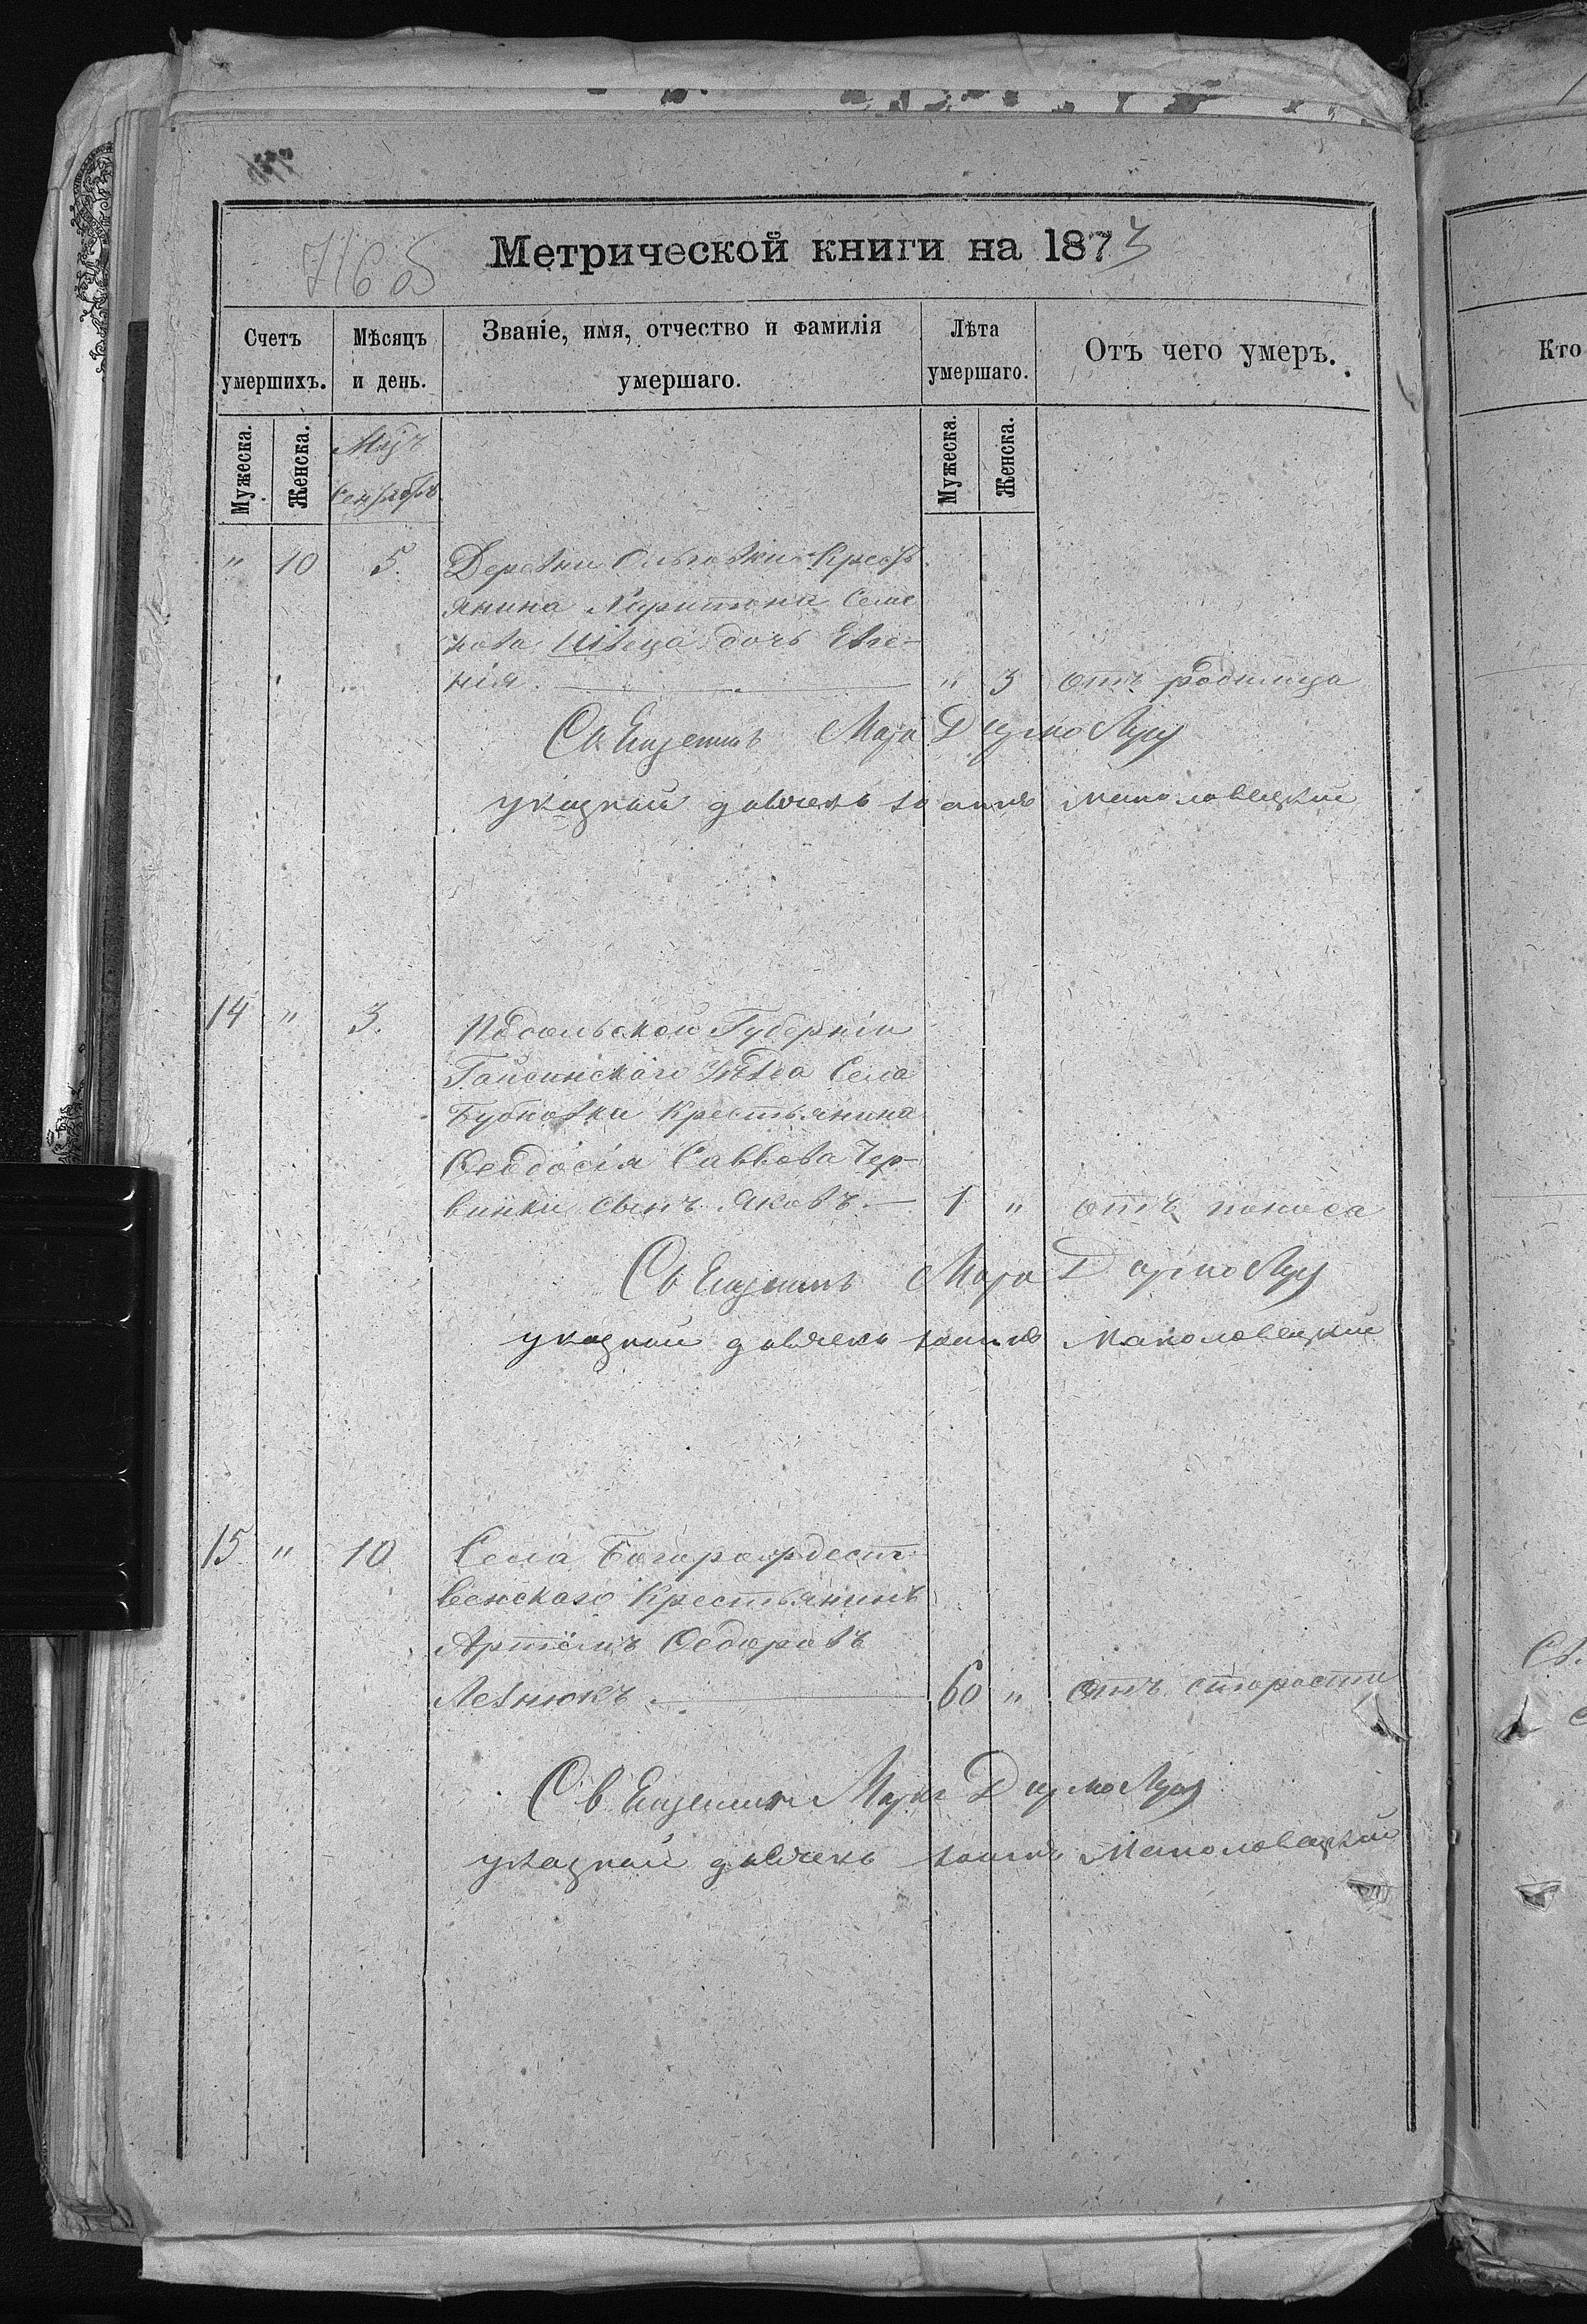 716 об
Метрической книги на 1873
Счетъ умершихъ.
Мѣсяцъ и день.
Званіе, имя, отчество и фамилія умершаго.
Лѣта умершаго.
Отъ чего умеръ.
Мужеска.
Женска.
Мцъ
Сентябрь
Мужеска.
Женска.
" 10 5. Деревни Ольговки Кресть
янина Харитона Семе
нова Швеца дочь Евге-
нія. " 3 отъ родимца
Священникъ
указный дьячекъ
14 " 3. Подольской Губерніи
Гайсинскаго Уѣзда Села
Бубновки Крестьянина
Феодосія Саввова Чер-
винки сынъ Яковъ. 1 " отъ поноса
Священникъ
указный дьячекъ
15 " 10 Села Богорождест
венскаго Крестьянинъ
Артемъ Федоровъ
Левнюкъ. 60 " отъ старости
Священникъ
указный дьячекъ
Кто